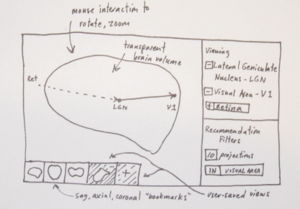 mouse interaction to
rotate, zoom
transparent
brain volume
Ret
LGN
V1
Viewing
Lateral Geniculate
Nucleus - LGN
Visual Area - V1
+ Retina
Recommendation
Filters
10 projections
IN VISUAL AREA
user-saved views
sag, axial, coronal "bookmarks"